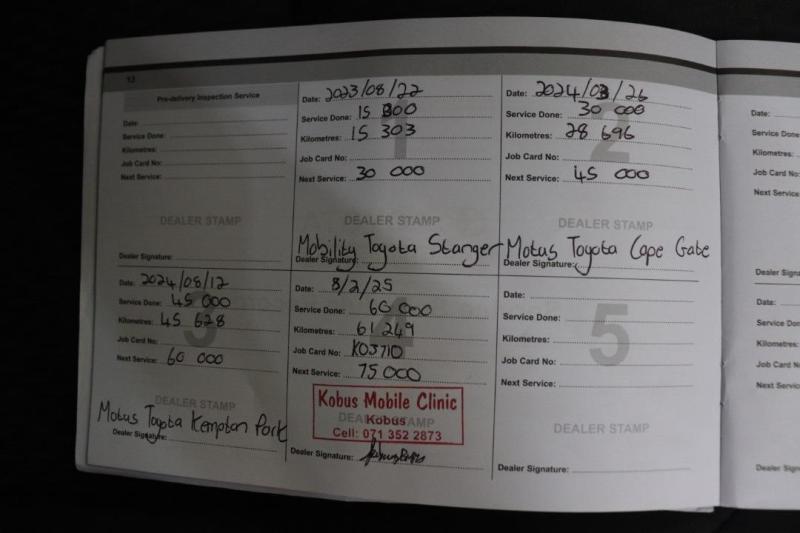 13
Pre-delivery Inspection Service
Date:
Service Done:
Kilometres:
Job Card No:
Next Service:
DEALER STAMP
Dealer Signature:
1
Date: 2023/08/22
Service Done: 15 000
Kilometres: 15 303
Job Card No:
Next Service: 30 000
DEALER STAMP
Mobility Toyota Stanger
Dealer Signature:
2
Date: 2024/03/26
Service Done: 30 000
Kilometres: 28 696
Job Card No:
Next Service: 45 000
DEALER STAMP
Motus Toyota Cape Gate
Dealer Signature:
3
Date: 2024/08/12
Service Done: 45 000
Kilometres: 45 628
Job Card No:
Next Service: 60 000
DEALER STAMP
Motus Toyota Kempton Park
Dealer Signature:
4
Date: 8/2/25
Service Done: 60 000
Kilometres: 61 249
Job Card No: K03710
Next Service: 75 000
DEALER STAMP
Kobus Mobile Clinic
Kobus
Cell: 071 352 2873
Dealer Signature:
5
Date:
Service Done:
Kilometres:
Job Card No:
Next Service:
DEALER STAMP
Dealer Signature:
Date:
Service Done
Kilometres:
Job Card No:
Next Service
Dealer Sign
Date:
Service Don
Kilometres:
Job Card N
Next Servic
Dealer Sign